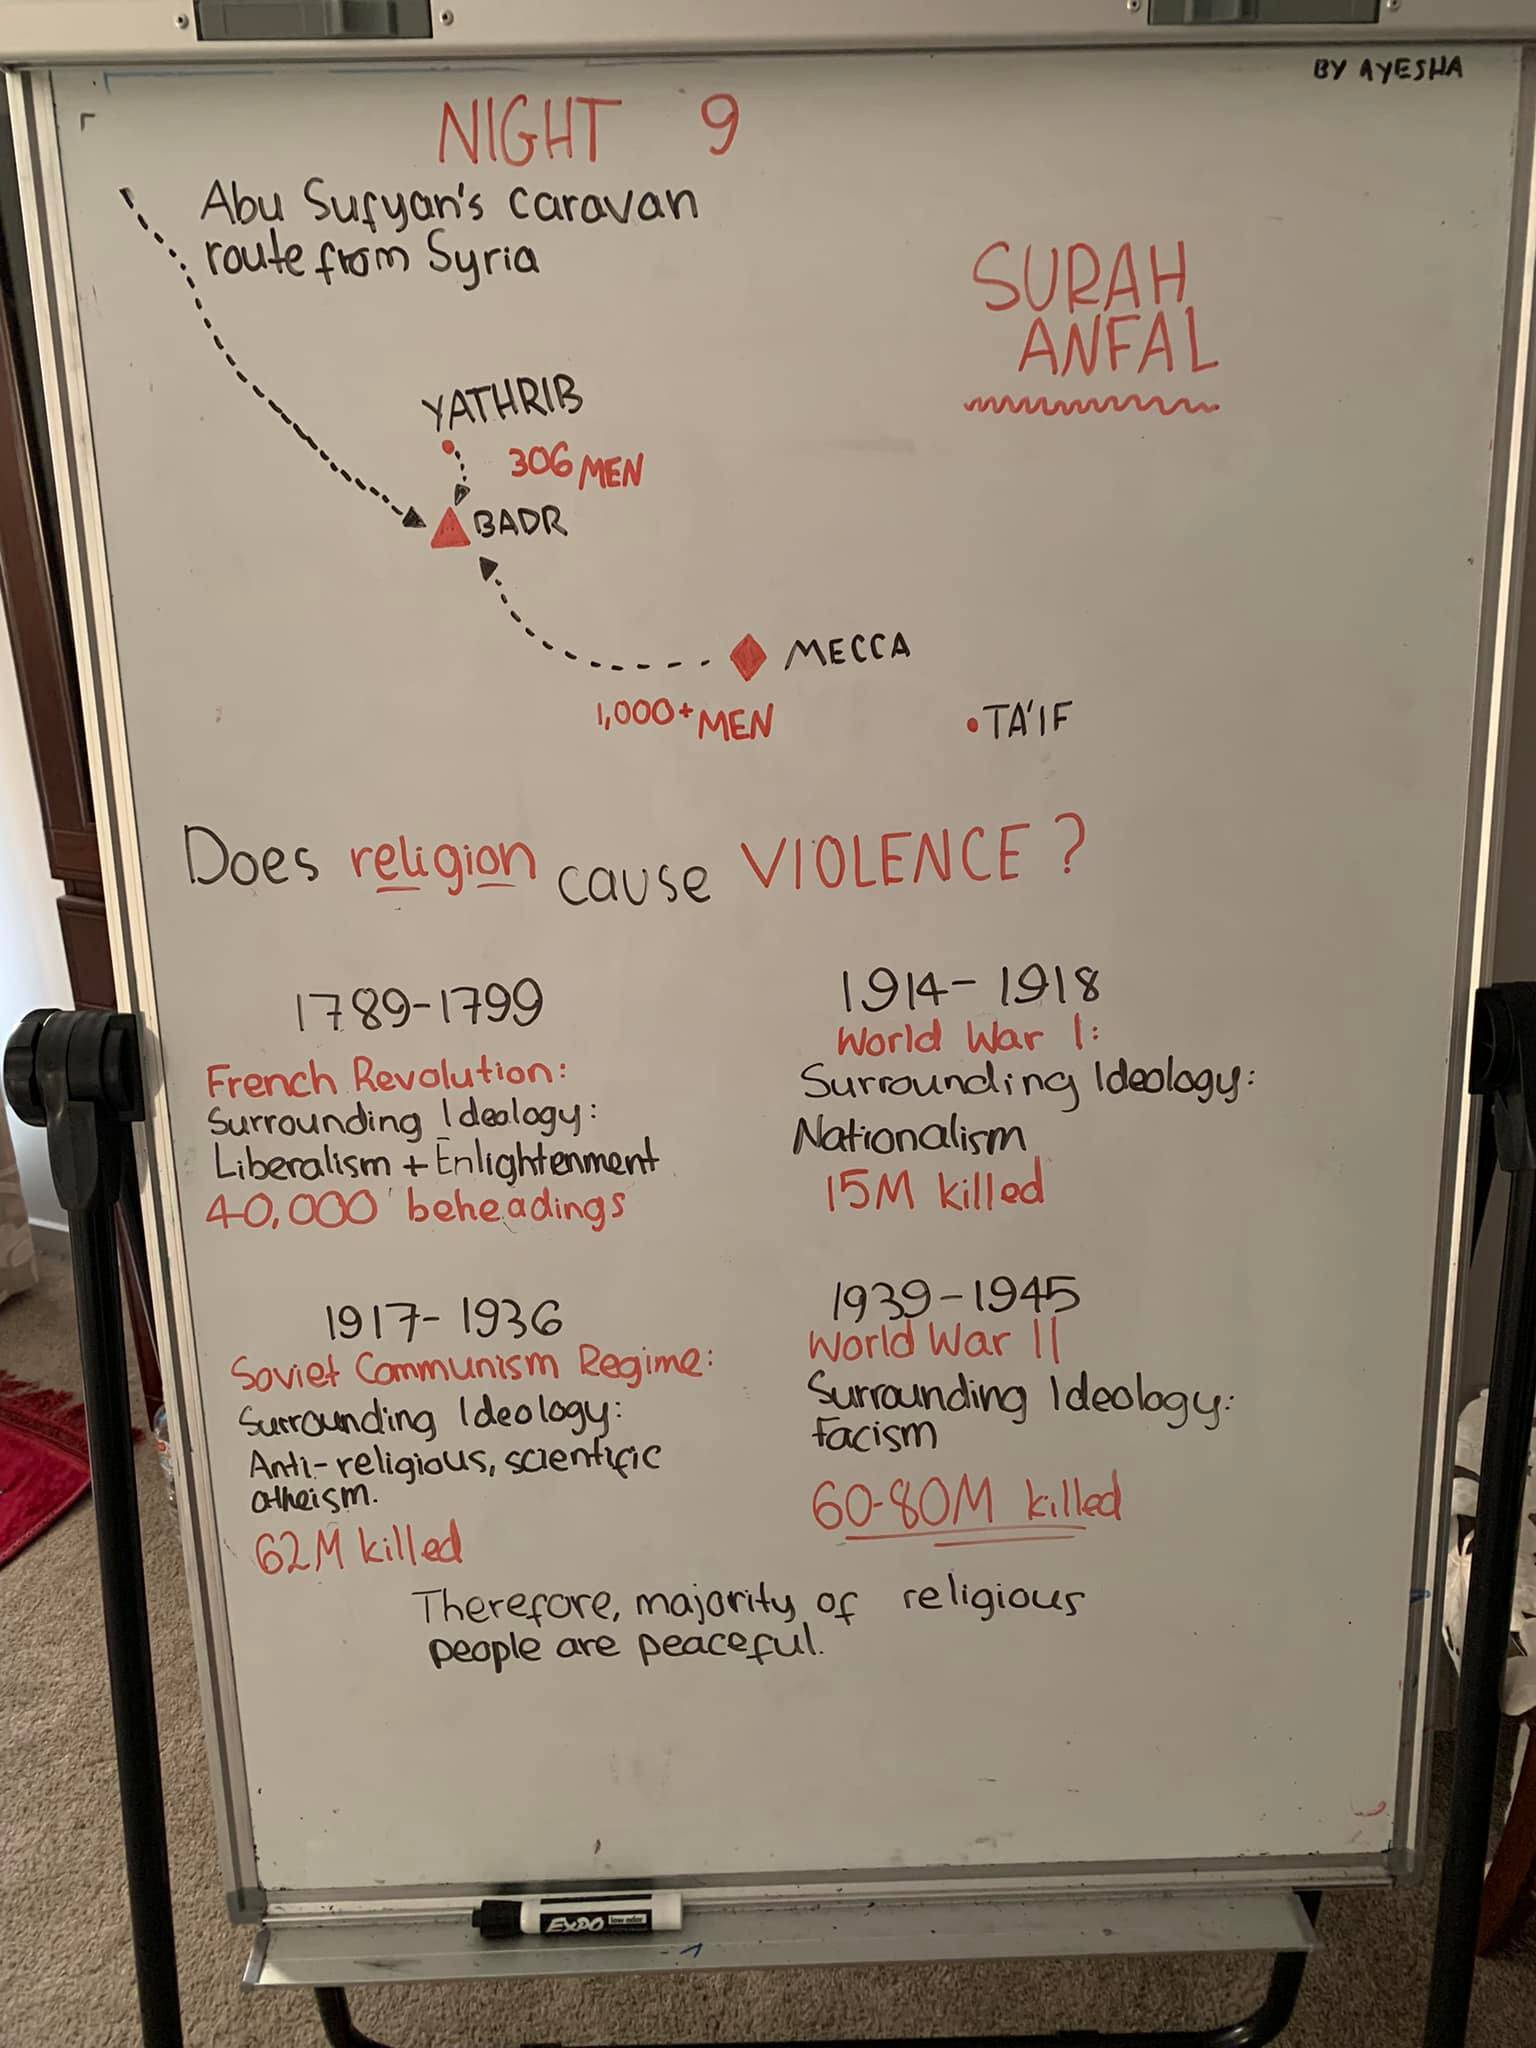 BY AYESHA
NIGHT 9
Abu Sufyan's caravan
route from Syria
SURAH
ANFAL
YATHRIB
306 MEN
BADR
MECCA
1,000+ MEN
TA'IF
Does religion cause VIOLENCE?
1789-1799
French Revolution:
Surrounding Ideology:
Liberalism + Enlightenment
40,000 beheadings
1914-1918
World War I:
Surrounding Ideology:
Nationalism
15M killed
1917-1936
Soviet Communism Regime:
Surrounding Ideology:
Anti-religious, scientific
atheism.
62M killed
1939-1945
World War II
Surrounding Ideology:
Facism
60-80M killed
Therefore, majority of religious
people are peaceful.
EXPO low odor